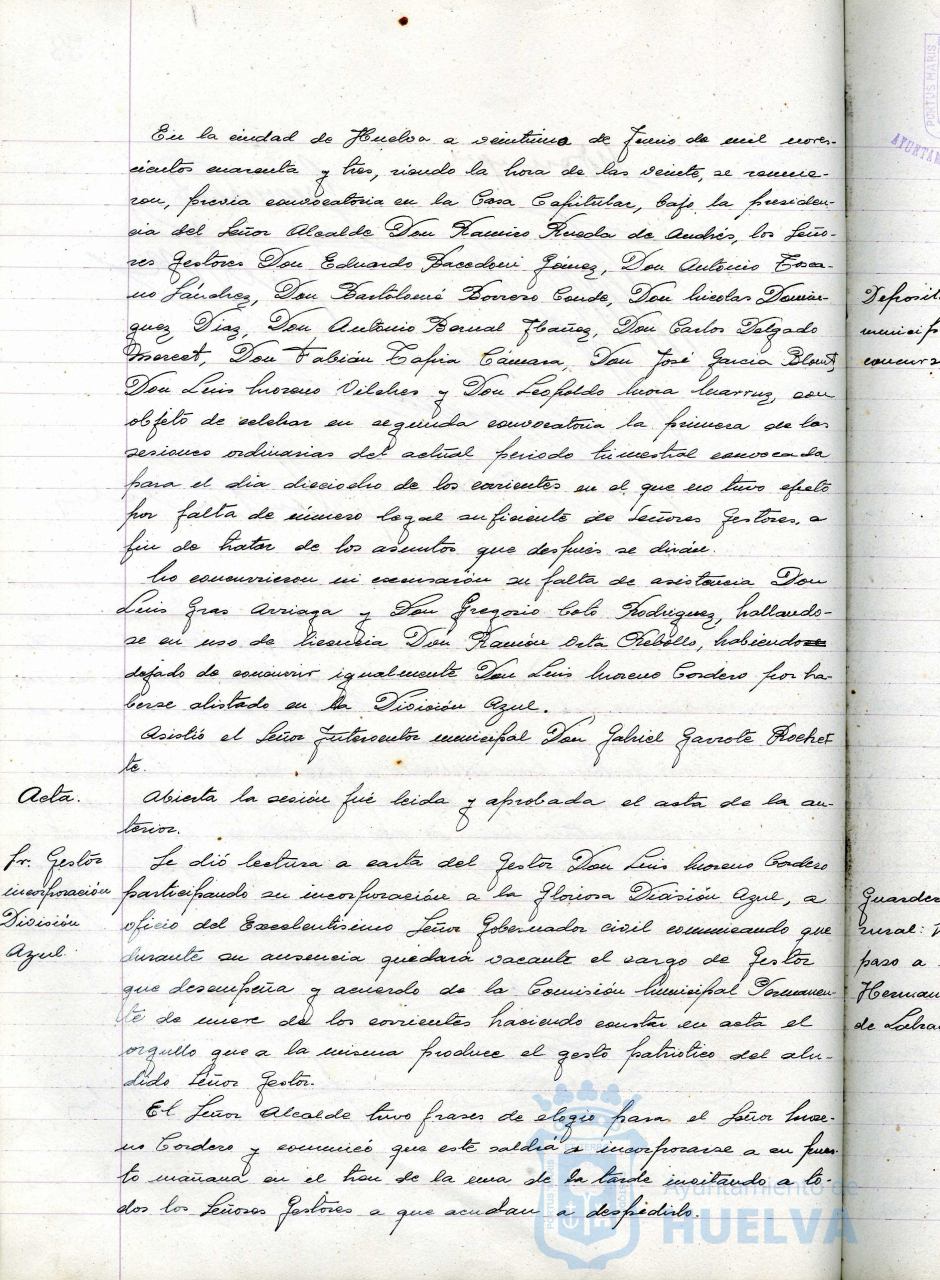 En la ciudad de Huelva a veintiuno de Junio de mil nove-
cientos cuarenta y tres, siendo la hora de las veinte, se reunie-
ron, previa convocatoria en la Casa Capitular, bajo la presiden-
cia del Señor Alcalde Don Ramiro Rueda de Andrés, los Seño-
res Gestores Don Eduardo Gómez, Don Antonio Tosca-
no Sánchez, Don Bartolomé Borrero Conde, Don Nicolas Domin-
guez Diaz, Don Antonio Bernal Ibañez, Don Carlos Delgado
Morcet, Don Fabián Tapia Cámara, Don José Garcia
Don Luis Moreno Vilches y Don Leopoldo Mora Marruz, con
objeto de celebrar en segunda convocatoria la primera de las
sesiones ordinarias del actual periodo trimestral convocada
para el dia dieciocho de los corrientes en el que no tuvo efecto
por falta de número legal suficiente de Señores Gestores, a
fin de tratar de los asuntos que después se dirán.
No concurrieron ni excusaron su falta de asistencia Don
Luis Gras Arriaga y Don Gregorio Coto Rodriguez, hallando-
se en uso de licencia Don Ramón Orta Rebollo, habiendose
dejado de concurrir igualmente Don Luis Moreno Cordero por ha-
berse alistado en la División Azul.
Asistió el Señor Interventor municipal Don Gabriel Garrote Rochet
te.
Acta.
Abierta la sesión fué leida y aprobada el acta de la an-
terior.
Sr. Gestor
incorporación
División
Azul.
Se dió lectura a carta del Gestor Don Luis Moreno Cordero
participando su incorporación a la Gloriosa División Azul, a
oficio del Excelentisimo Señor Gobernador civil comunicando que
durante su ausencia quedará vacante el cargo de Gestor
que desempeña y acuerdo de la Comisión Municipal Permanen-
te de nueve de los corrientes haciendo constar en acta el
orgullo que a la misma produce el gesto patriotico del alu-
dido Señor Gestor.
El Señor Alcalde tuvo frases de elogio para el Señor More-
no Cordero y comunicó que este saldrá a incorporarse a su pues
to mañana en el tren de la una de la tarde invitando a to-
dos los Señores Gestores a que acudan a despedirlo.
Ayuntamiento de
HUELVA
PORTUS MARIS
AYUNTAM
Deposit
municip
concurs
Guarder
rural:
paso a
Herman
de Labra